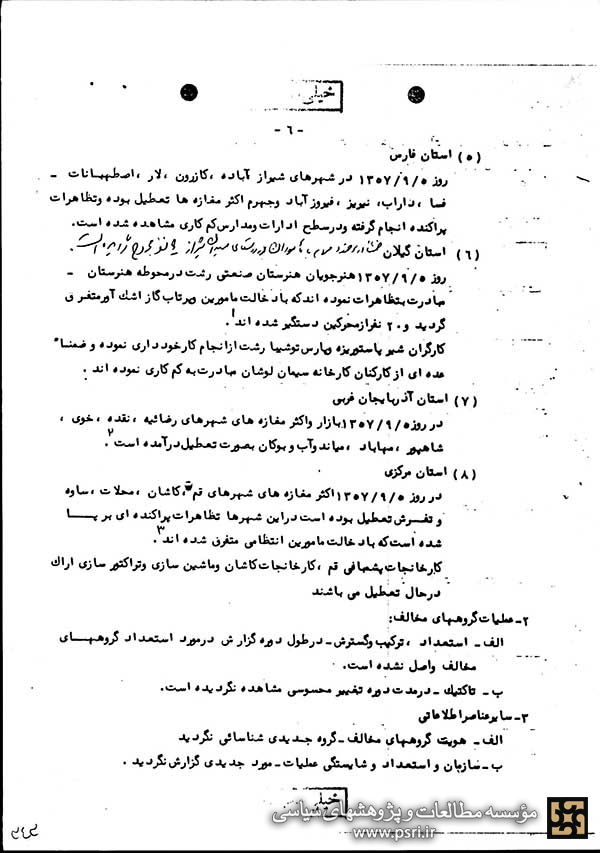 خیلی
-٦-
(٥) استان فارس
روز ١٣٥٧/٩/٥ در شهرهای شیراز آباده ، کازرون ، لار ، اصطهبانات -
فسا ، داراب ، نیریز ، فیروزآباد وجهرم اکثر مغازه ها تعطیل بوده وتظاهرات
پراکنده انجام گرفته ودرسطح ادارات ومدارس کم کاری مشاهده شده است.
(٦) استان گیلان
روز ١٣٥٧/٩/٥ هنرجویان هنرستان صنعتی رشت درمحوطه هنرستان -
مبادرت بتظاهرات نموده اندکه بادخالت مامورین وپرتاب گاز اشک آورمتفرق
گردید و ٢٠ نفرازمحرکین دستگیر شده اند ١.
کارگران شیر پاستوریزه وپارس توشیبا رشت ازانجام کارخودداری نموده و ضمناً
عده ای از کارکنان کارخانه سیمان لوشان مبادرت به کم کاری نموده اند .
(٧) استان آذربایجان غربی
در روز ١٣٥٧/٩/٥ بازار واکثر مغازه های شهرهای رضائیه ، نقده ، خوی ،
شاهپور ، مهاباد ، میاندوآب وبوکان بصورت تعطیل درآمده است ٢.
(٨) استان مرکزی
در روز ١٣٥٧/٩/٥ اکثر مغازه های شهرهای قم ، کاشان ، محلات ، ساوه
و تفرش تعطیل بوده است دراین شهرها تظاهرات پراکنده ای برپــا
شده است که بادخالت مامورین انتظامی متفرق شده اند ٣.
کارخانجات پشمبافی قم ، کارخانجات کاشان وماشین سازی وتراکتور سازی اراک
درحال تعطیل می باشند
٢- عملیات گروههای مخالف:
الف - استعداد ، ترکیب وگسترش - درطول دوره گزارش درمورد استعداد گروههــای
مخالف واصل نشده است.
ب - تاکتیک - درمدت دوره تغییر محسوسی مشاهده نگردیده است.
٣- سایرعناصراطلاعاتی
الف - هویت گروههای مخالف - گروه جدیدی شناسائی نگردید
ب - سازمان و استعداد و شایستگی عملیات - مورد جدیدی گزارش نگردید .
خیلی
مؤسسه مطالعات و پژوهشهای سیاسی
www.psri.ir